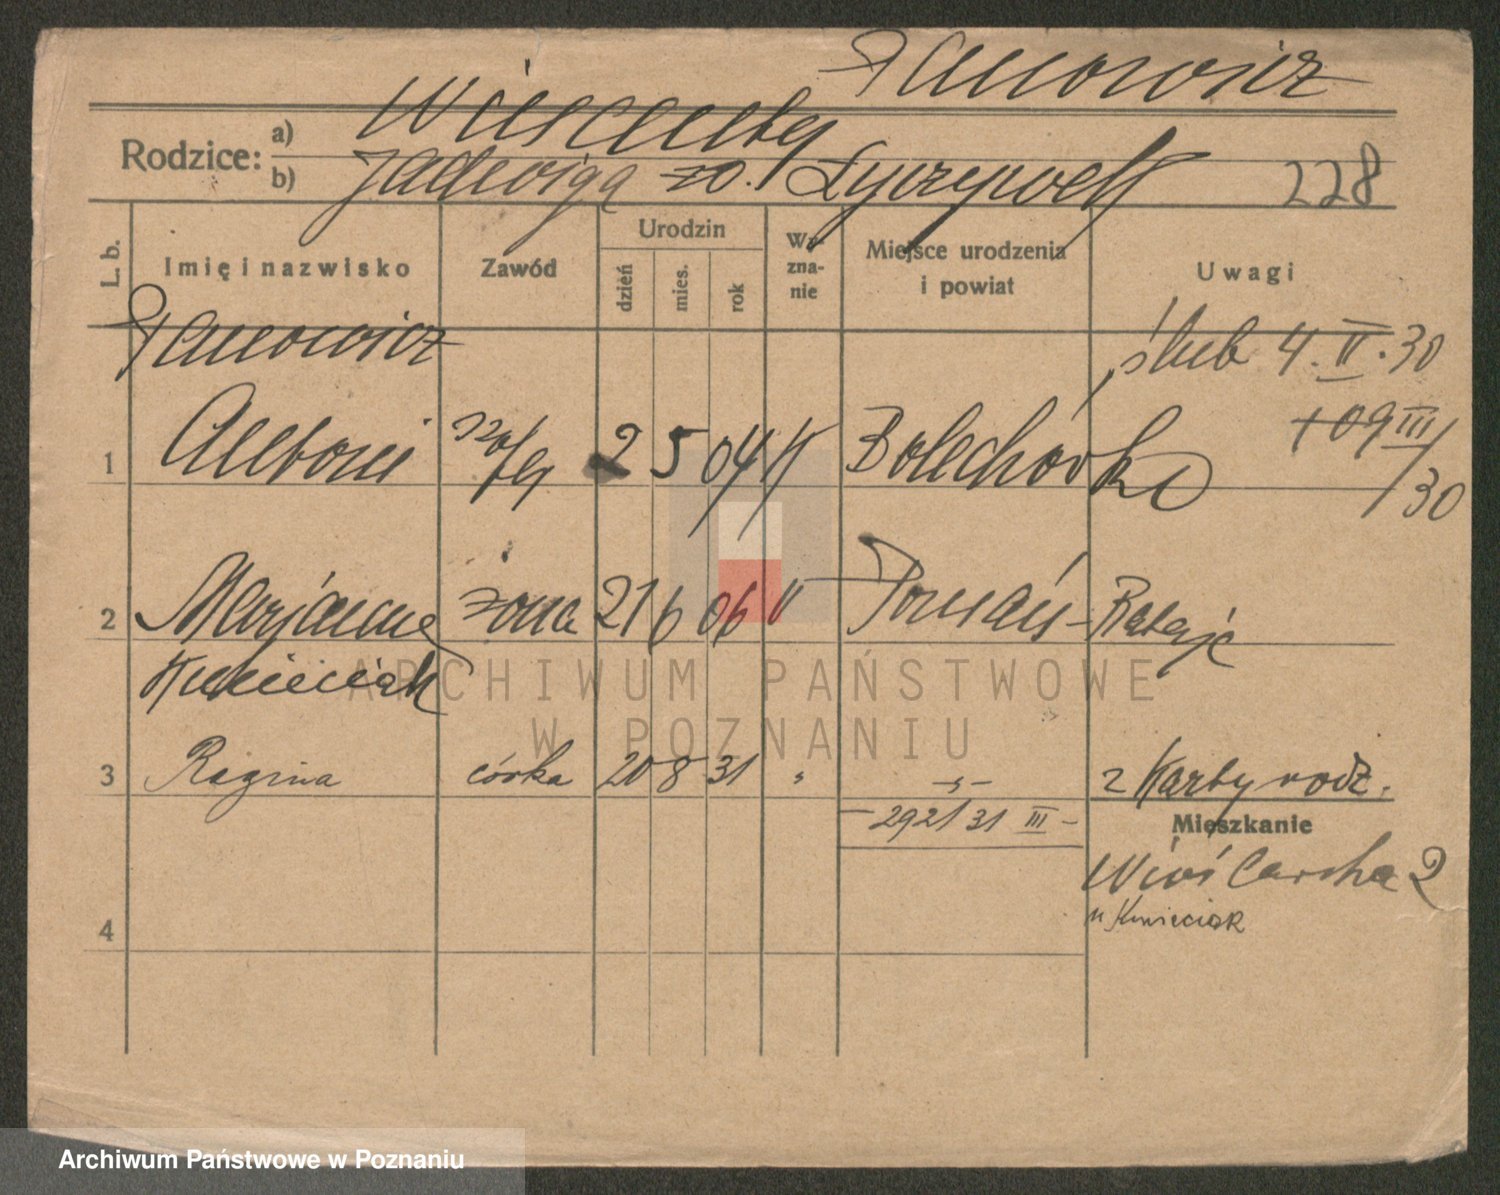 Janowicz
Rodzice: a) Wincenty
b) Jadwiga zd. Łyczywek 228
L. b. Imię i nazwisko Zawód Urodzin dzień mies. rok Wyznanie Miejsce urodzenia i powiat Uwagi
Janowicz ślub 4.II.30
1 Antoni 2 5 04 K Bolechówko + 09 III/30
2 Marjanna żona 21 6 06 " Poznań - Rataje
Kwieciak
3 Regina córka 20 8 31 " -"- z Karty rodz.
- 2921 31 III -
Mieszkanie
Wioślarska 2
u Kwieciak
4
ARCHIWUM PAŃSTWOWE
W POZNANIU
Archiwum Państwowe w Poznaniu